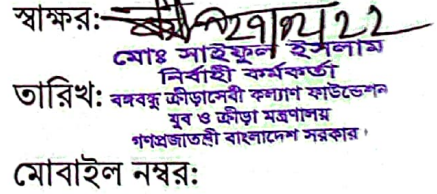 স্বাক্ষর: 29/12/22
মোঃ সাইফুল ইসলাম
নির্বাহী কর্মকর্তা
তারিখ: বঙ্গবন্ধু ক্রীড়াসেবী কল্যাণ ফাউন্ডেশন
যুব ও ক্রীড়া মন্ত্রণালয়
গণপ্রজাতন্ত্রী বাংলাদেশ সরকার
মোবাইল নম্বর: